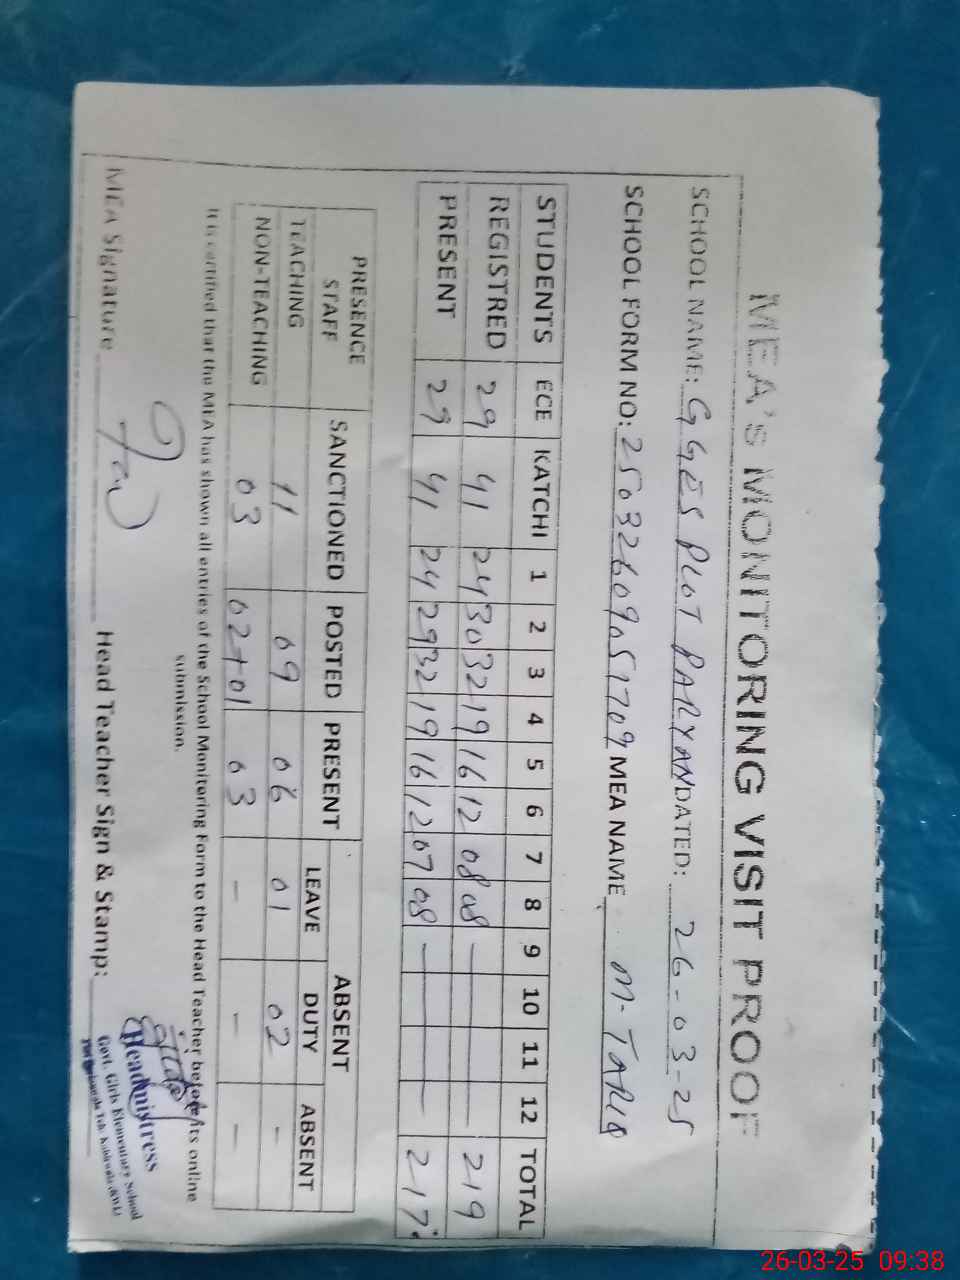 MEA's MONITORING VISIT PROOF
SCHOOL NAME: GGES PLOT PARYAN DATED: 26-03-25
SCHOOL FORM NO: 25032609051709 MEA NAME M-TARIQ
STUDENTS ECE KATCHI 1 2 3 4 5 6 7 8 9 10 11 12 TOTAL
REGISTRED 29 41 24 30 32 19 16 12 08 08 — — — — 219
PRESENT 29 41 24 29 32 19 16 12 07 08 — — — — 217
PRESENCE STAFF SANCTIONED POSTED PRESENT ABSENT
LEAVE DUTY ABSENT
TEACHING 11 09 06 01 02 -
NON-TEACHING 03 02+01 03 - - -
It is certified that the MEA has shown all entries of the School Monitoring Form to the Head Teacher before its online
submission.
MEA Signature Head Teacher Sign & Stamp:
Headmistress
Govt. Girls Elementary School
26-03-25 09:38